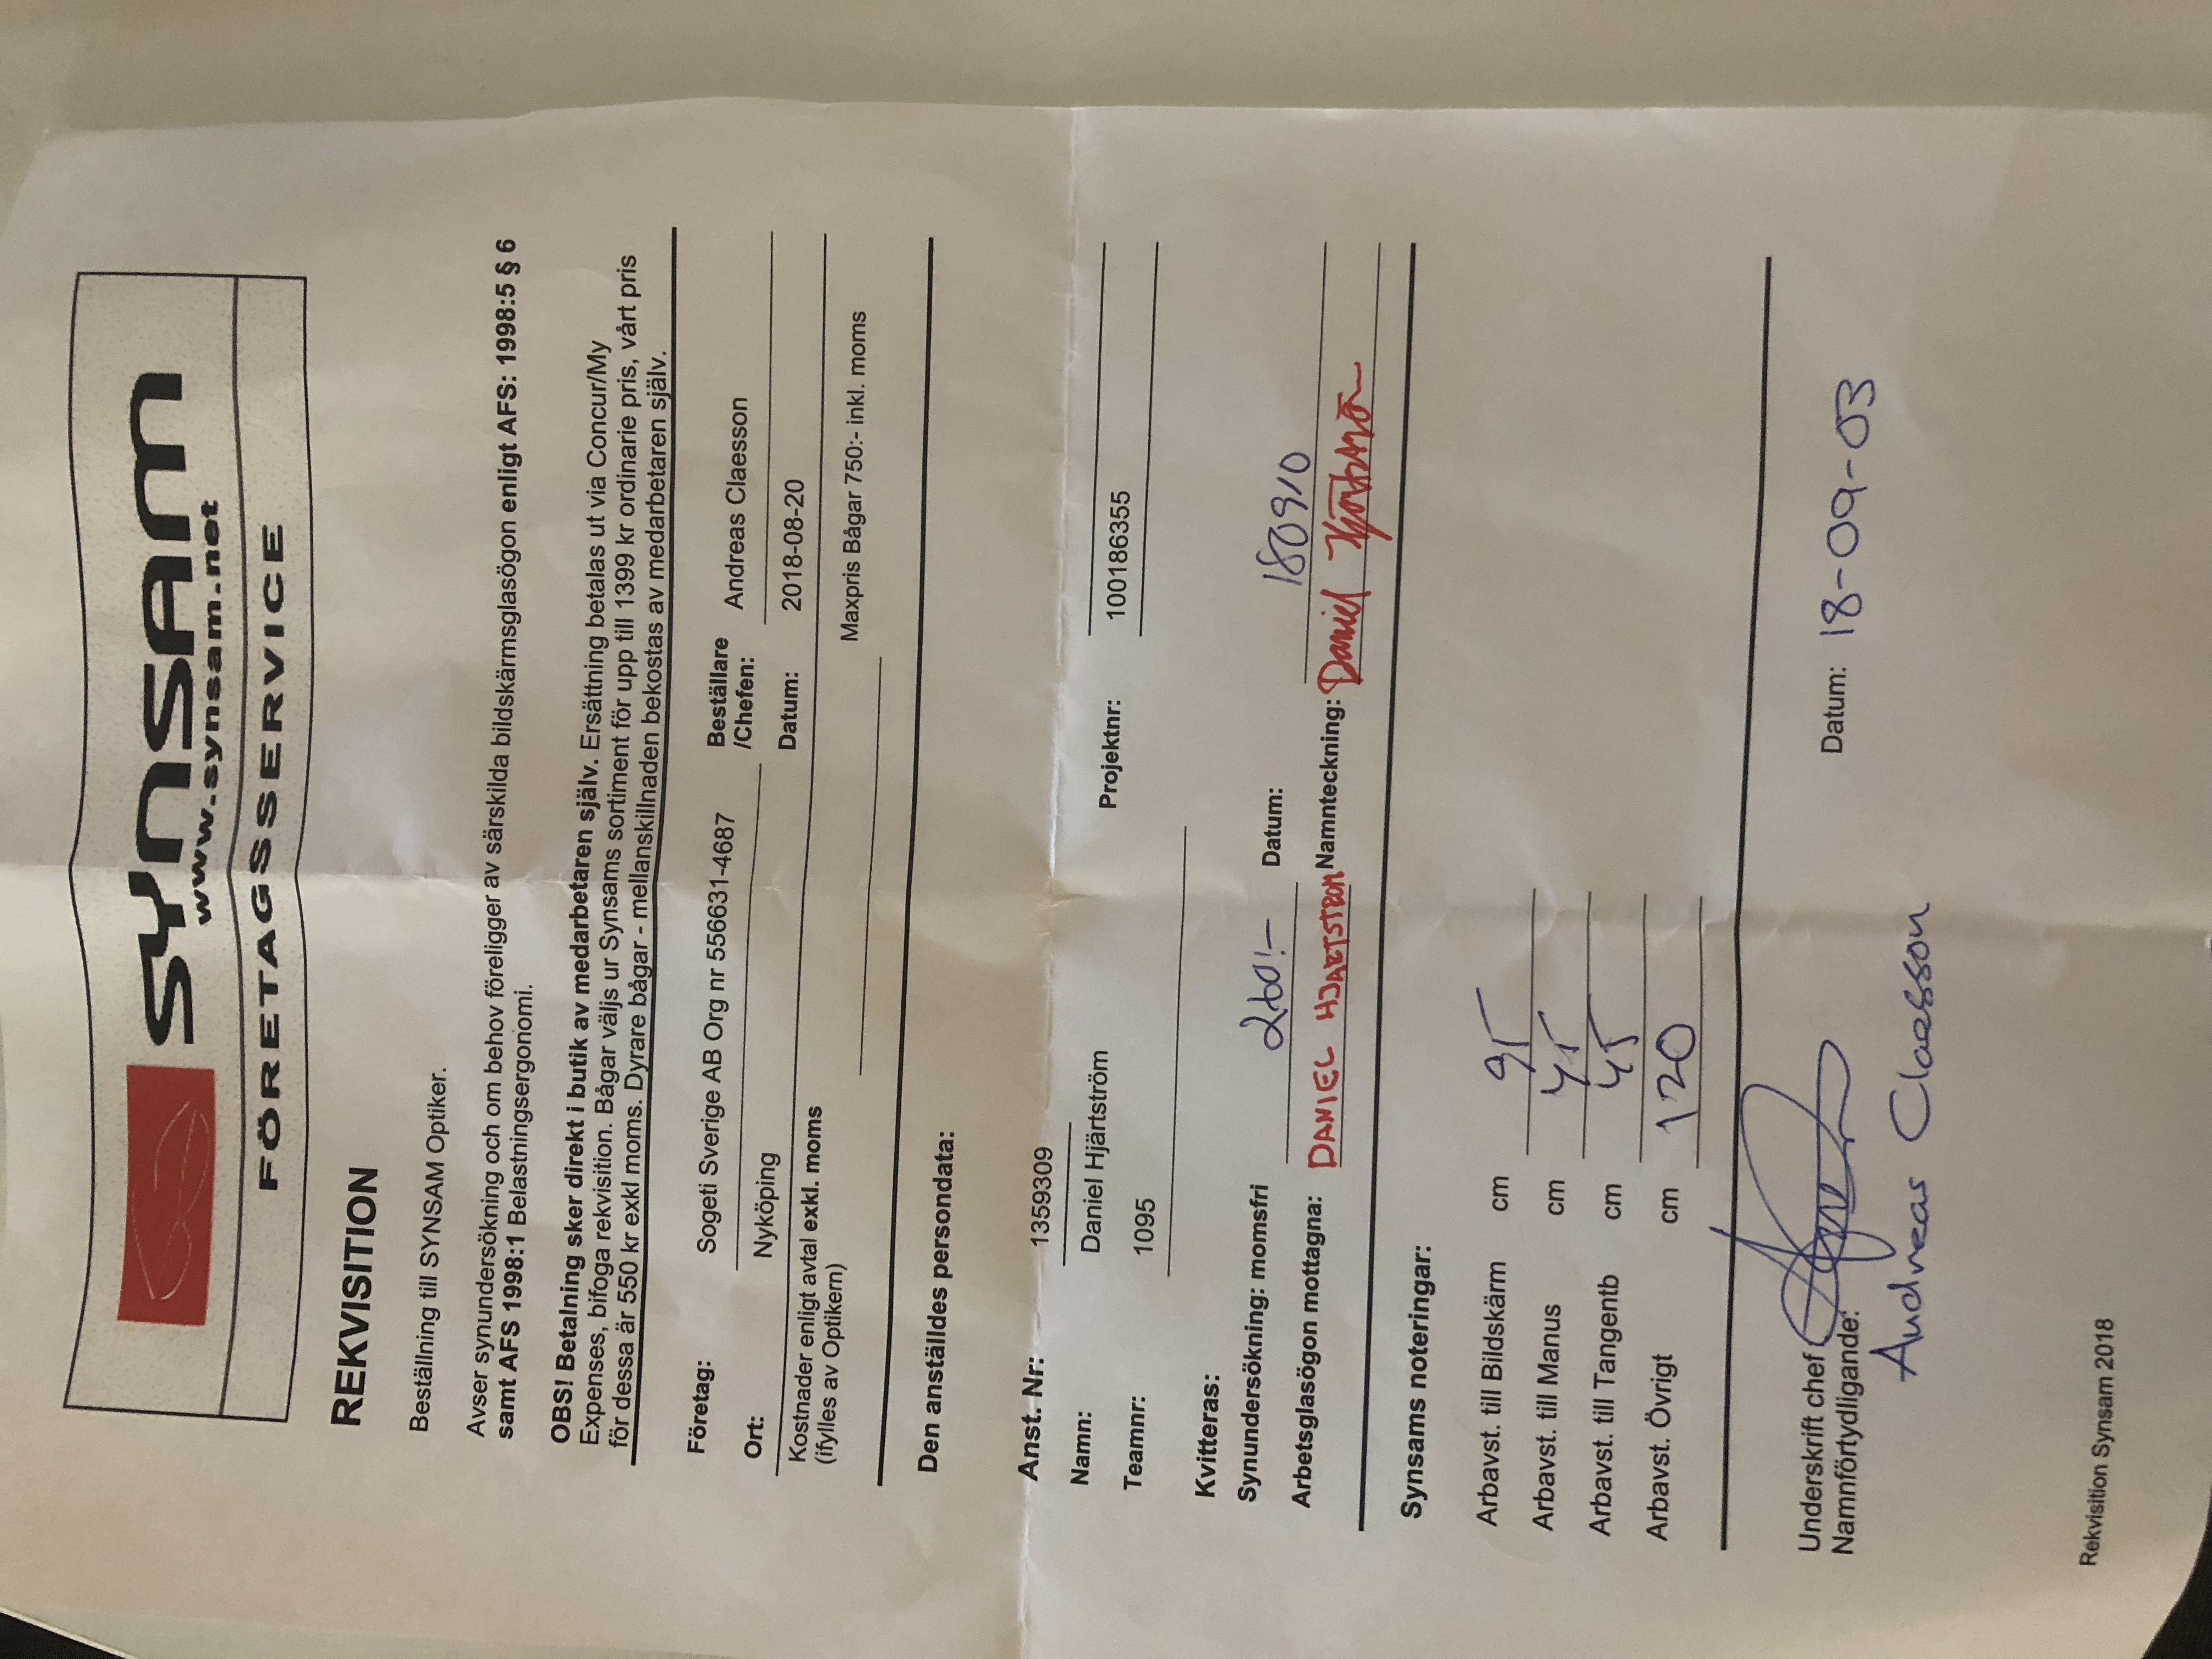 SYNSAM
www.synsam.net
FÖRETAGSSERVICE
REKVISITION
Beställning till SYNSAM Optiker.
Avser synundersökning och om behov föreligger av särskilda bildskärmsglasögon enligt AFS: 1998:5 § 6
samt AFS 1998:1 Belastningsergonomi.
OBS! Betalning sker direkt i butik av medarbetaren själv. Ersättning betalas ut via Concur/My
Expenses, bifoga rekvisition. Bågar väljs ur Synsams sortiment för upp till 1399 kr ordinarie pris, vårt pris
för dessa är 550 kr exkl moms. Dyrare bågar - mellanskillnaden bekostas av medarbetaren själv.
Företag: Sogeti Sverige AB Org nr 556631-4687 Beställare
/Chefen: Andreas Claesson
Ort: Nyköping Datum: 2018-08-20
Kostnader enligt avtal exkl. moms
(ifylles av Optikern) Maxpris Bågar 750:- inkl. moms
Den anställdes persondata:
Anst. Nr: 1359309
Namn: Daniel Hjärtström Projektnr: 100186355
Teamnr: 1095
Kvitteras:
Synundersökning: momsfri 260:- Datum: 180910
Arbetsglasögon mottagna: DANIEL HJARTSTROM Namnteckning: Daniel Hjärtström
Synsams noteringar:
Arbavst. till Bildskärm cm 95
Arbavst. till Manus cm 45
Arbavst. till Tangentb cm 45
Arbavst. Övrigt cm 120
Underskrift chef
Namnförtydligande: Datum: 18-09-03
Andreas Claesson
Rekvisition Synsam 2018